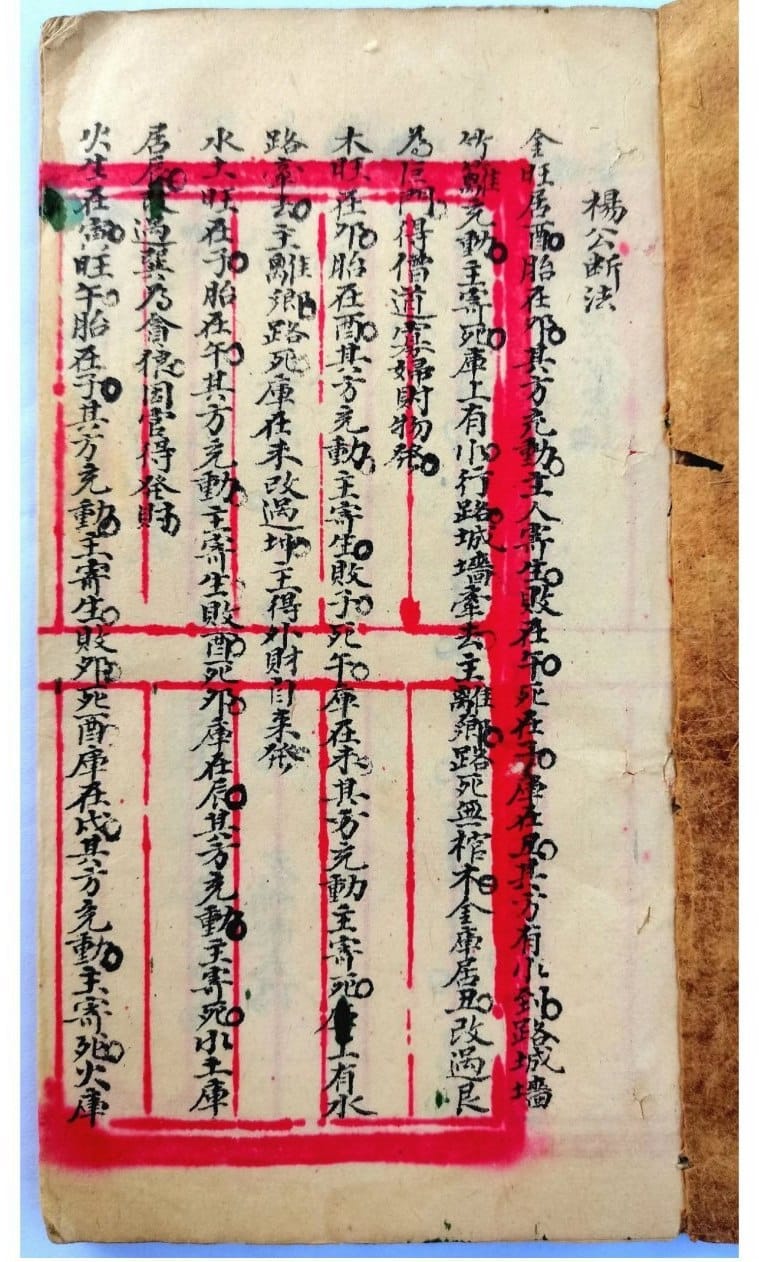 楊公断法
金旺居酉胎在卯其方充動主人寄生敗在午死在子庫在丑其方有水到路城墻
竹籬充動主寄死庫上有水行路城墻牽去主離鄉路死無棺木金庫居丑改過艮
為 門得僧道寡婦財物發
木旺在卯胎在酉其方充動主寄生敗子死午庫在未其方充動主寄死庫上有水
路牽去主離鄉路死庫在未改過坤主得外財自来發
水土旺在子胎在午其方充動主寄生敗酉死卯庫在辰其方充動主寄死水土庫
居辰改過巽為會 因官得發財
火生在寅旺午胎在子其方充動主寄生敗卯死酉庫在戌其方充動主寄死火庫